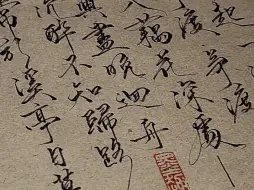 溪亭日暮
沉醉不知歸路
興盡晚迴舟
入藕花深處
渡爭渡
起一